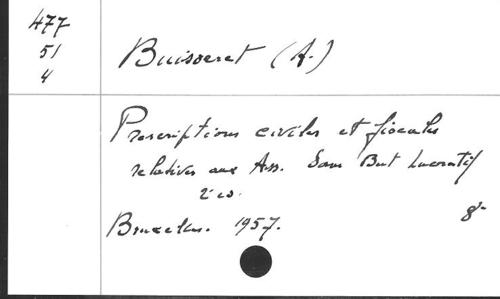 477
51
4
Buisseret (A.)
Prescriptions civiles et fiscales
relatives aux Ass. Sans But Lucratif
2 ed.
Bruxelles. 1957.
8°